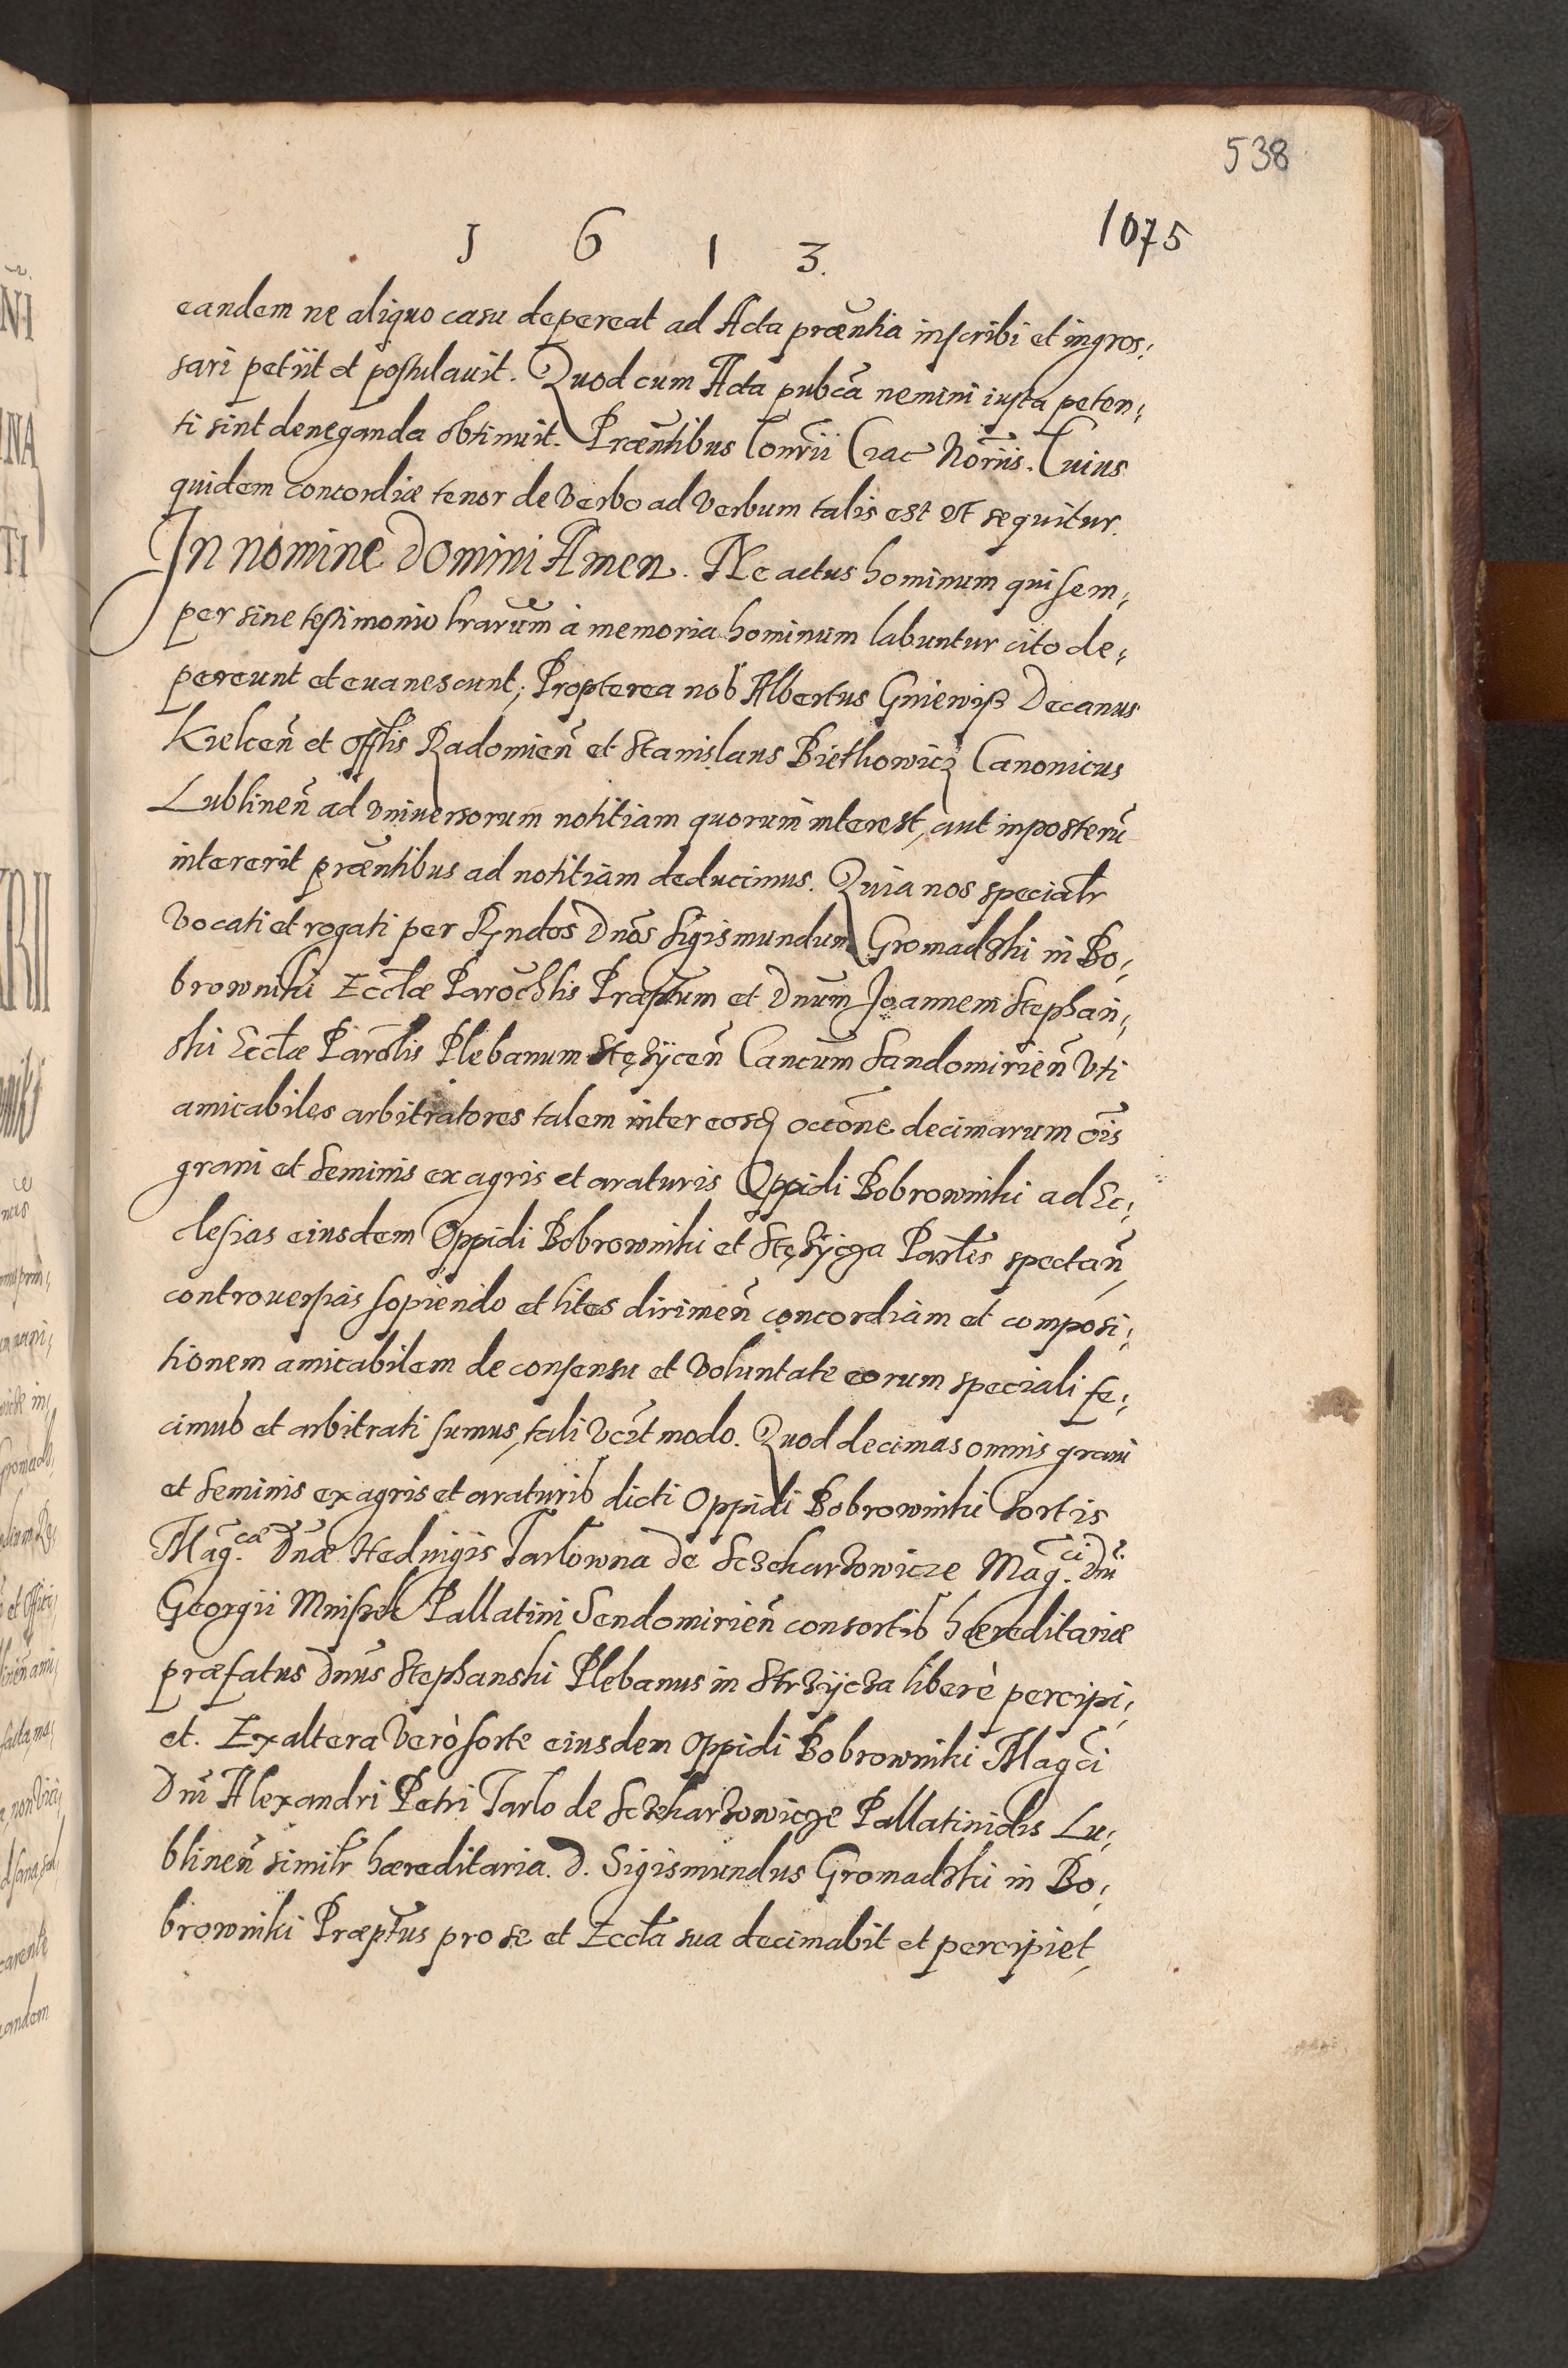 538
1075
1 6 1 3.
eandem ne aliquo casu depereat ad Acta præntia inscribi et ingros;
sari petiit et postulauit. Quod cum Acta pubca nemini iusta peten;
ti sint deneganda obtinuit. Præntibus Conrii Crac Noriis. Cuius
quidem concordiæ tenor de verbo ad verbum talis est ut sequitur.
In nomine Domini Amen. Ne actus hominum qui sem;
per sine testimonio lrarum à memoria hominum labuntur cito de;
pereunt et euanescunt; Propterea nos Albertus Gniewiß Decanus
Kielceñ et Offlis Radomieñ et Stanislaus Biethowicz Canonicus
Lublineñ ad vniuersorum notitiam quorum interest, aut inposterũ
intererit præntibus ad notitiam deducimus. Quia nos specialr
vocati et rogati per Rndos Dnos Sigismundum Gromadzki in Bo;
browniki Ecclæ Parochlis Præptum et Dnum Joannem Stephan;
ski Ecclæ Parolis Plebanum Stęzyceñ Cancum Sandomirieñ Vti
amicabiles arbitratores talem inter eosq occone decimarum ois
grani et seminis ex agris et araturis Oppidi Bobrowniki ad Ec;
clesias eiusdem Oppidi Bobrowniki et Stęzycza Partes spectañ,
controuersias sopiendo et lites dirimeñ concordiam et composi;
tionem amicabilem de consensu et voluntate eorum speciali fe;
cimus et arbitrati sumus, tali vczt modo. Quod decimas omnis grani
et seminis ex agris et araturis dicti Oppidi Bobrowniki sortis
Mag.cæ Dnæ Hedvigis Tarlowna de Sczekarzowicze Mag.ci Dni
Georgii Mniszek Pallatini Sendomirieñ consortis hæreditariæ
præfatus Dnus Stephanski Plebanus in Strzycza liberè percipi;
et. Ex altera verò sorte eiusdem Oppidi Bobrowniki Magci
Dni Alexandri Petri Tarlo de Sczekarzowicze Pallatinidis Lu;
blineñ similr hæreditaria. D. Sigismundus Gromadzki in Bo;
browniki Præptus pro se et Eccla sua decimabit et percipiet,